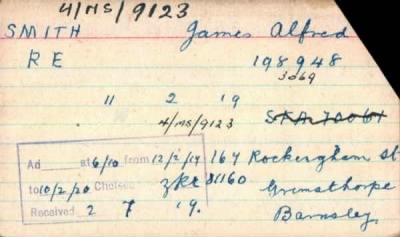 4/MS/9123
SMITH James Alfred
R E 198948
3069
11 2 19
4/MS/9123
Ad at 6/10 from 12/2/19 164 Rockergham st
to 10/2/20 Chelsea 31160 Grimsthorpe
Received 2 7 19. Barnsley